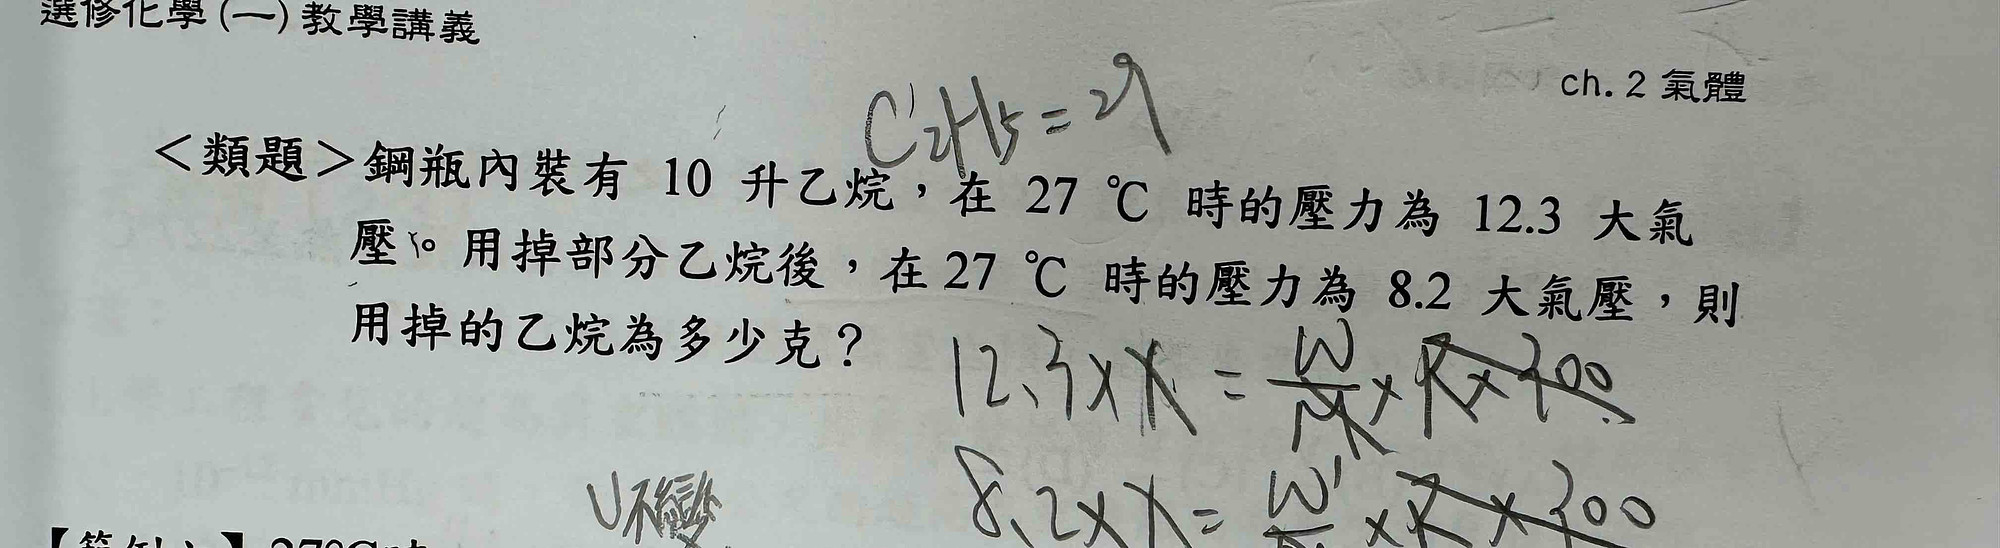 選修化學(一)教學講義
ch. 2 氣體
C2H5=29
<類題>鋼瓶內裝有 10 升乙烷，在 27 ℃ 時的壓力為 12.3 大氣
壓。用掉部分乙烷後，在 27 ℃ 時的壓力為 8.2 大氣壓，則
用掉的乙烷為多少克？
12.3×X=W/M×R×300
8.2×X=W'/M×R×300
U不變